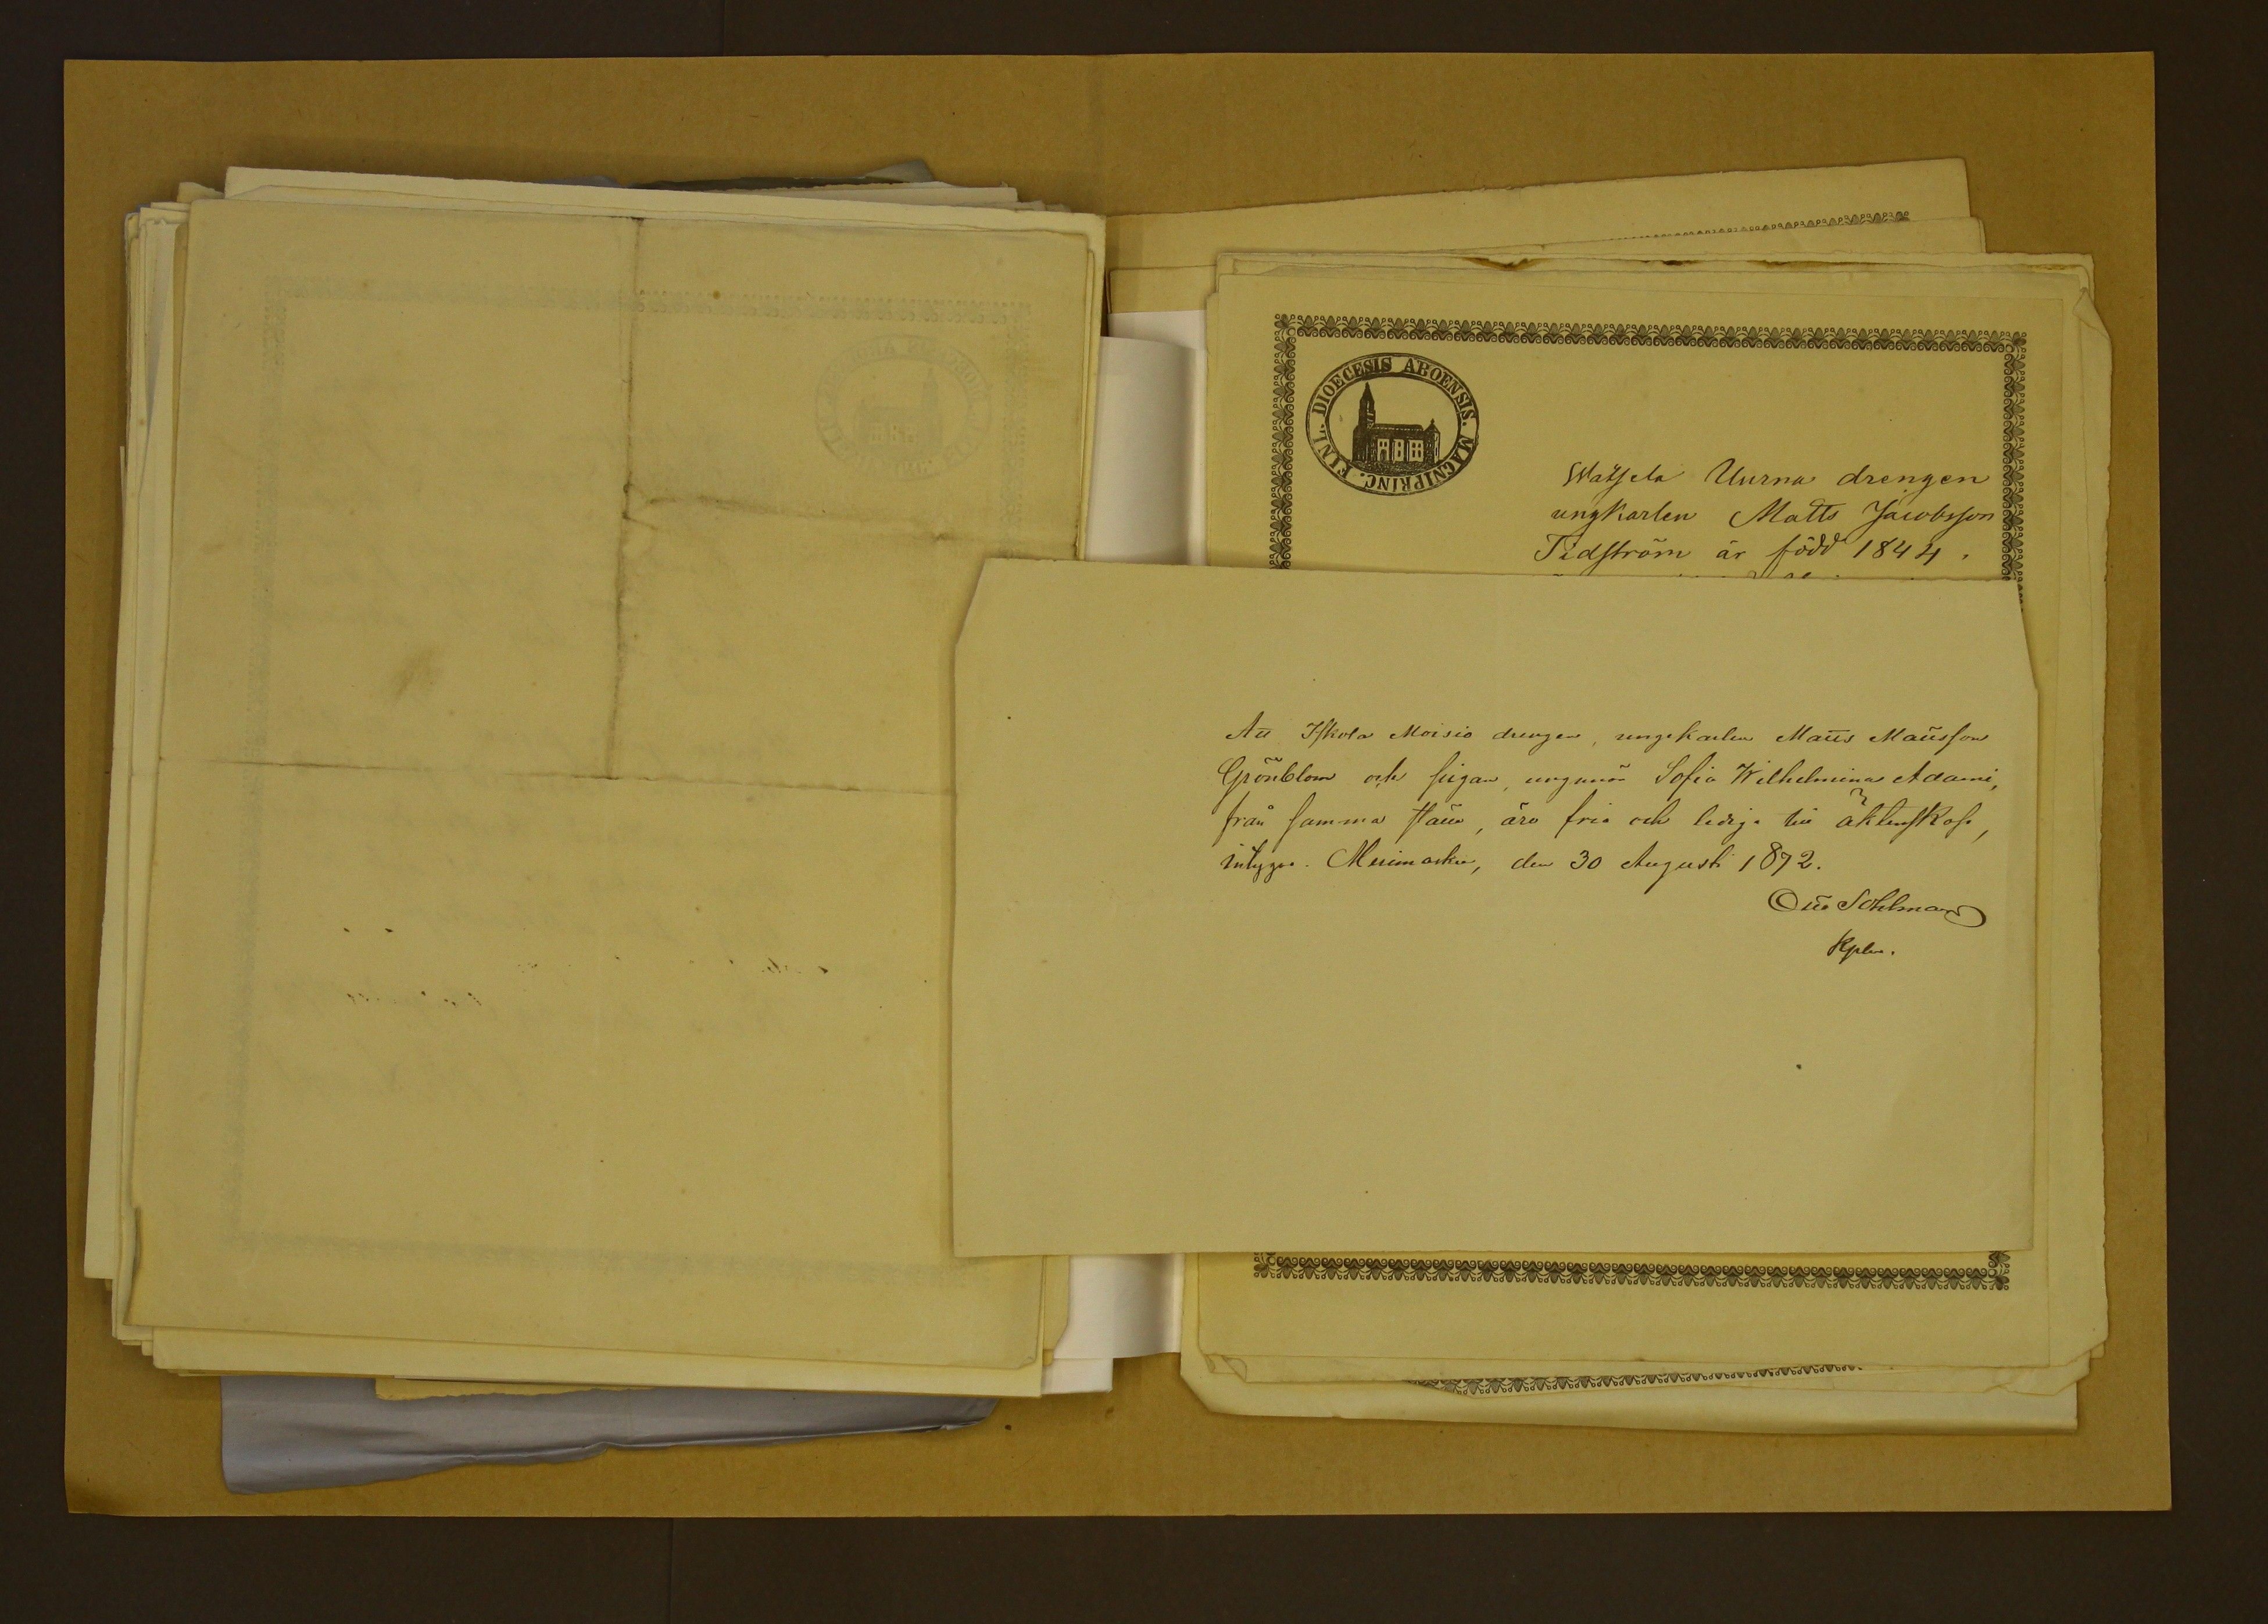 FINL. DIOECESIS ABOENSIS. MAGNIPRINC.
Uurna drengen
ungkarlen Matts Jacobsson
Tidström är född 1844.
Att Iskola Moisio drengen, ungekarlen Matts Mattsson
Grönblom och pigan, ungmön Sofia Wilhelmina Adami,
från samma ställe, äro fria och lediga till äktenskap,
intygas. Merimasku, den 30 Augusti 1872.
Otto Sohlman
Kpln.